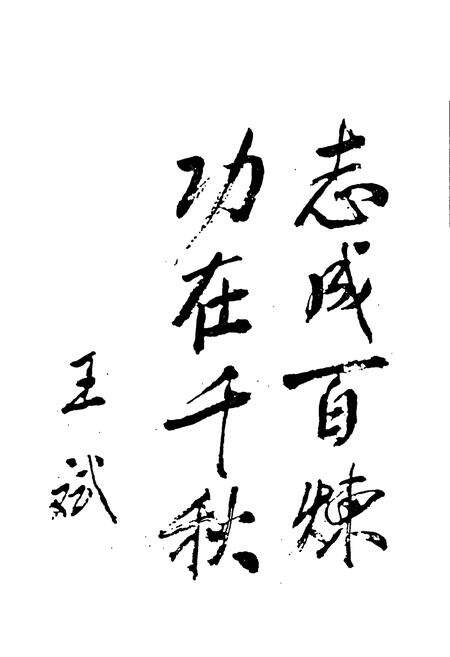 志成百炼
功在千秋
王斌